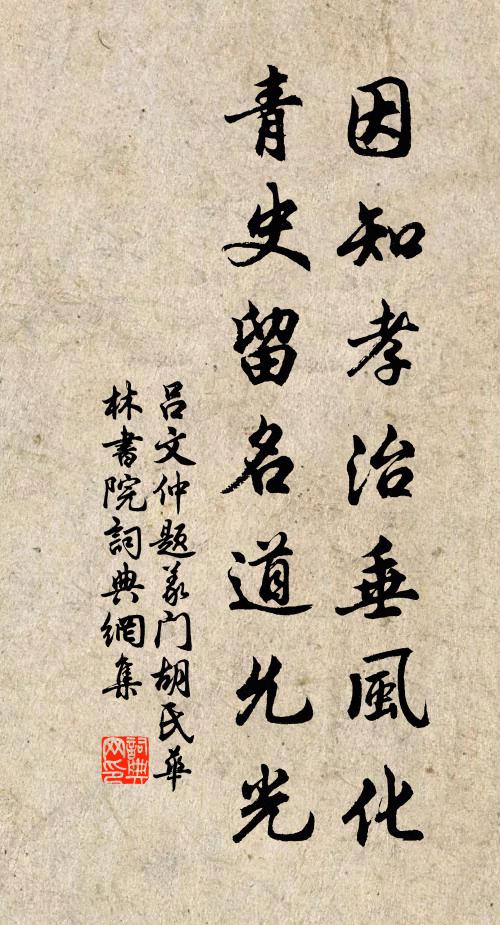 因知孝治垂風化
青史留名道允光
吕文仲題義门胡氏華
林書院詞典網集
詞典网印